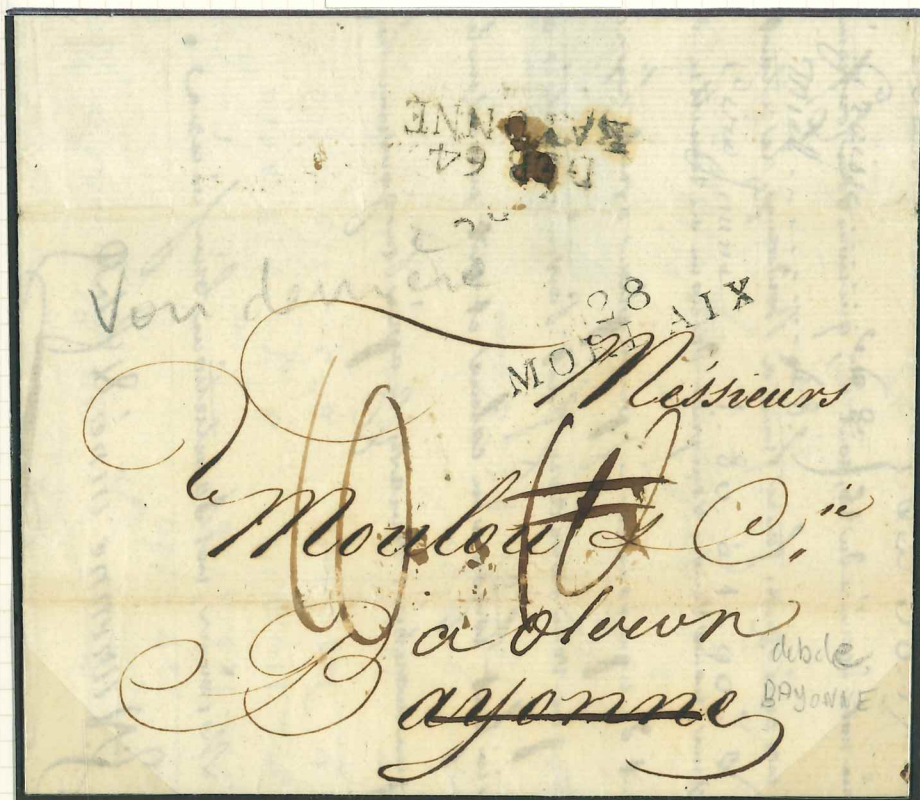 DEB 64
BAYONNE
Voir derrière
28
MORLAIX
Messieurs
Moulou & C.ie
a oloron
Bayonne
deb de
BAYONNE